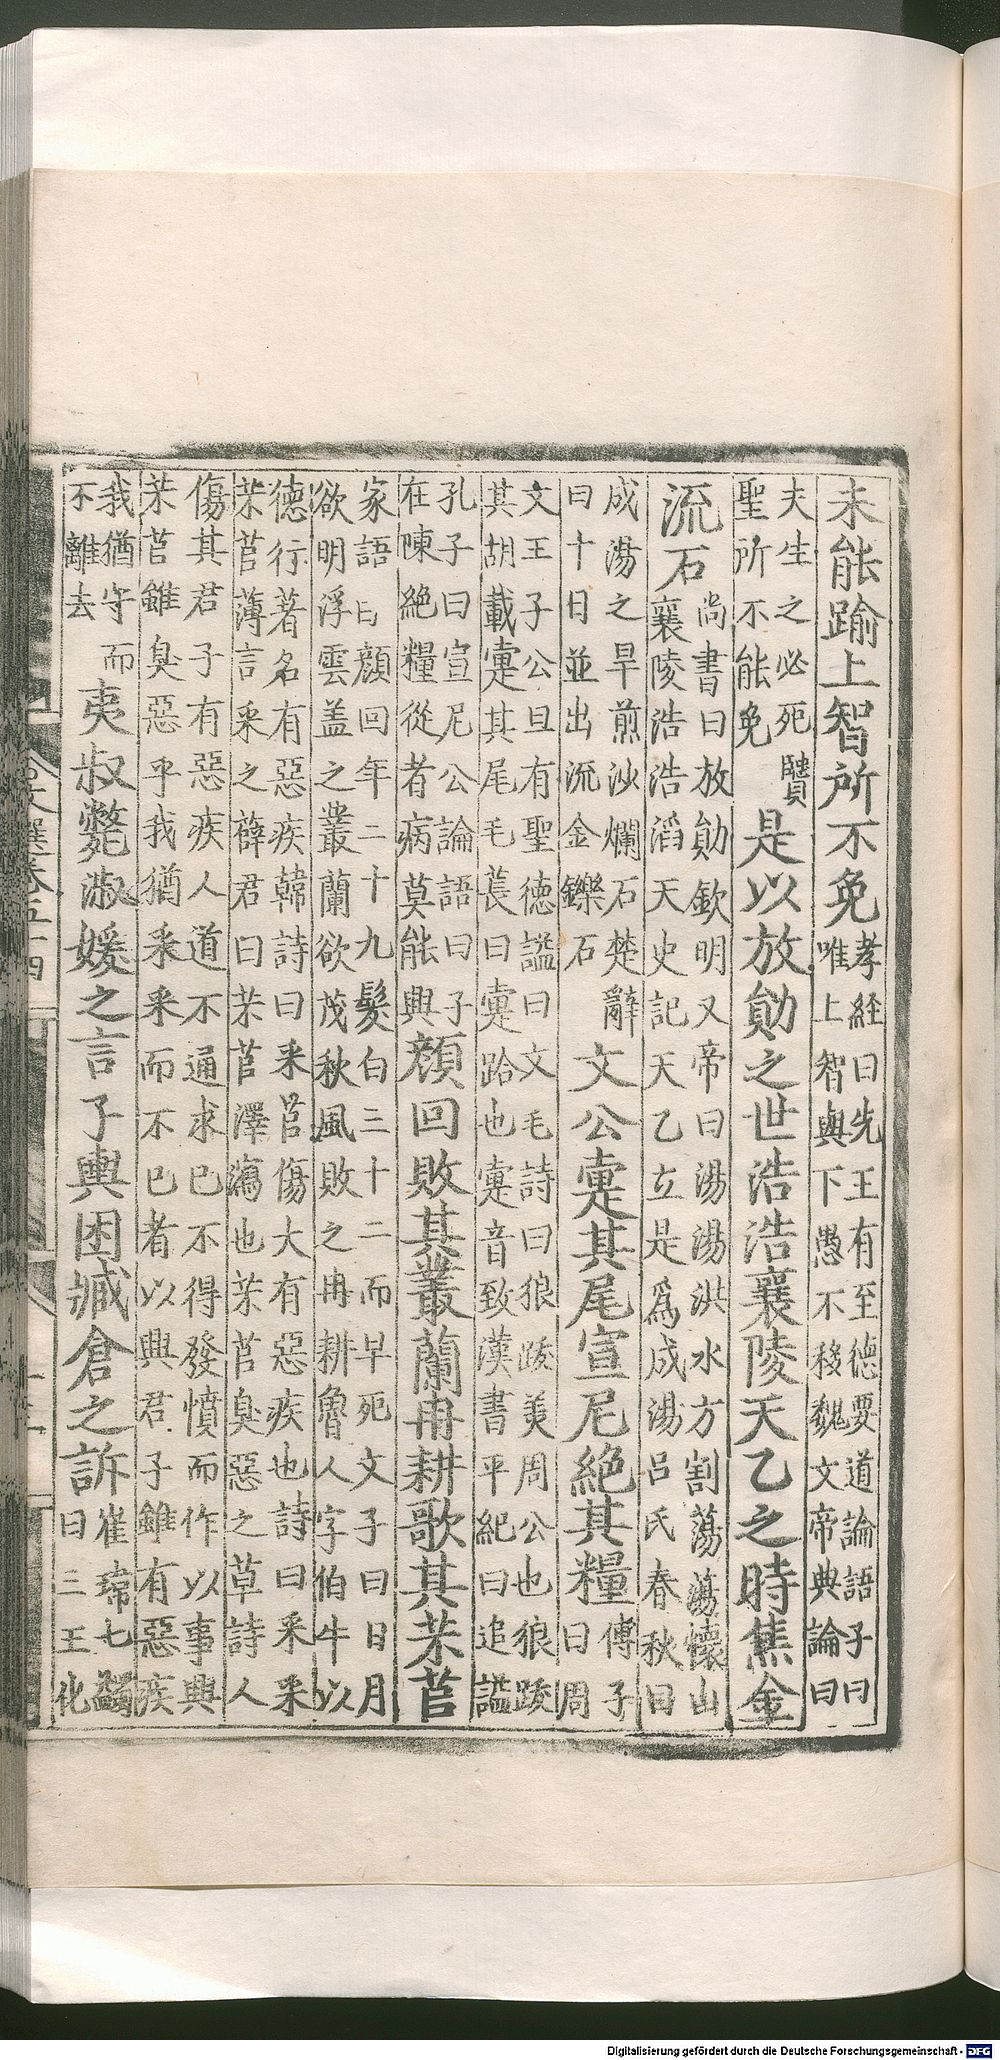 未能踰上智所不免孝経曰先王有至德要道論語子曰
唯上智與下愚不移魏文帝典論曰
夫生之必死贒
聖所不能免是以放勛之世浩浩襄陵天乙之時焦金
流石尚書曰放勛欽明又帝曰湯湯洪水方割蕩蕩懷山
襄陵浩浩滔天史記天乙立是爲成湯呂氏春秋曰
成湯之旱煎沙爛石楚辭
曰十日並出流金鑠石文公疐其尾宣尼絕其糧傅子
曰周
文王子公旦有聖德謚曰文毛詩曰狼跋美周公也狼跋
其胡載疐其尾毛萇曰疐跲也疐音致漢書平紀曰追謚
孔子曰宣尼公論語曰子
在陳絕糧從者病莫能興顏回敗其叢蘭冉耕歌其芣苢
家語曰顏回年二十九髮白三十二而早死文子曰日月
欲明浮雲盖之叢蘭欲茂秋風敗之冉耕魯人字伯牛以
德行著名有惡疾韓詩曰采苢傷大有惡疾也詩曰采采
芣苢薄言采之薛君曰芣苢澤瀉也芣苢臭惡之草詩人
傷其君子有惡疾人道不通求已不得發憤而作以事興
芣苢雖臭惡乎我猶采采而不已者以興君子雖有惡疾
我猶守而
不離去夷叔斃淑媛之言子輿困臧倉之訴崔琦七蠲
曰三王化
文選卷五十四
Digitalisierung gefördert durch die Deutsche Forschungsgemeinschaft - DFG